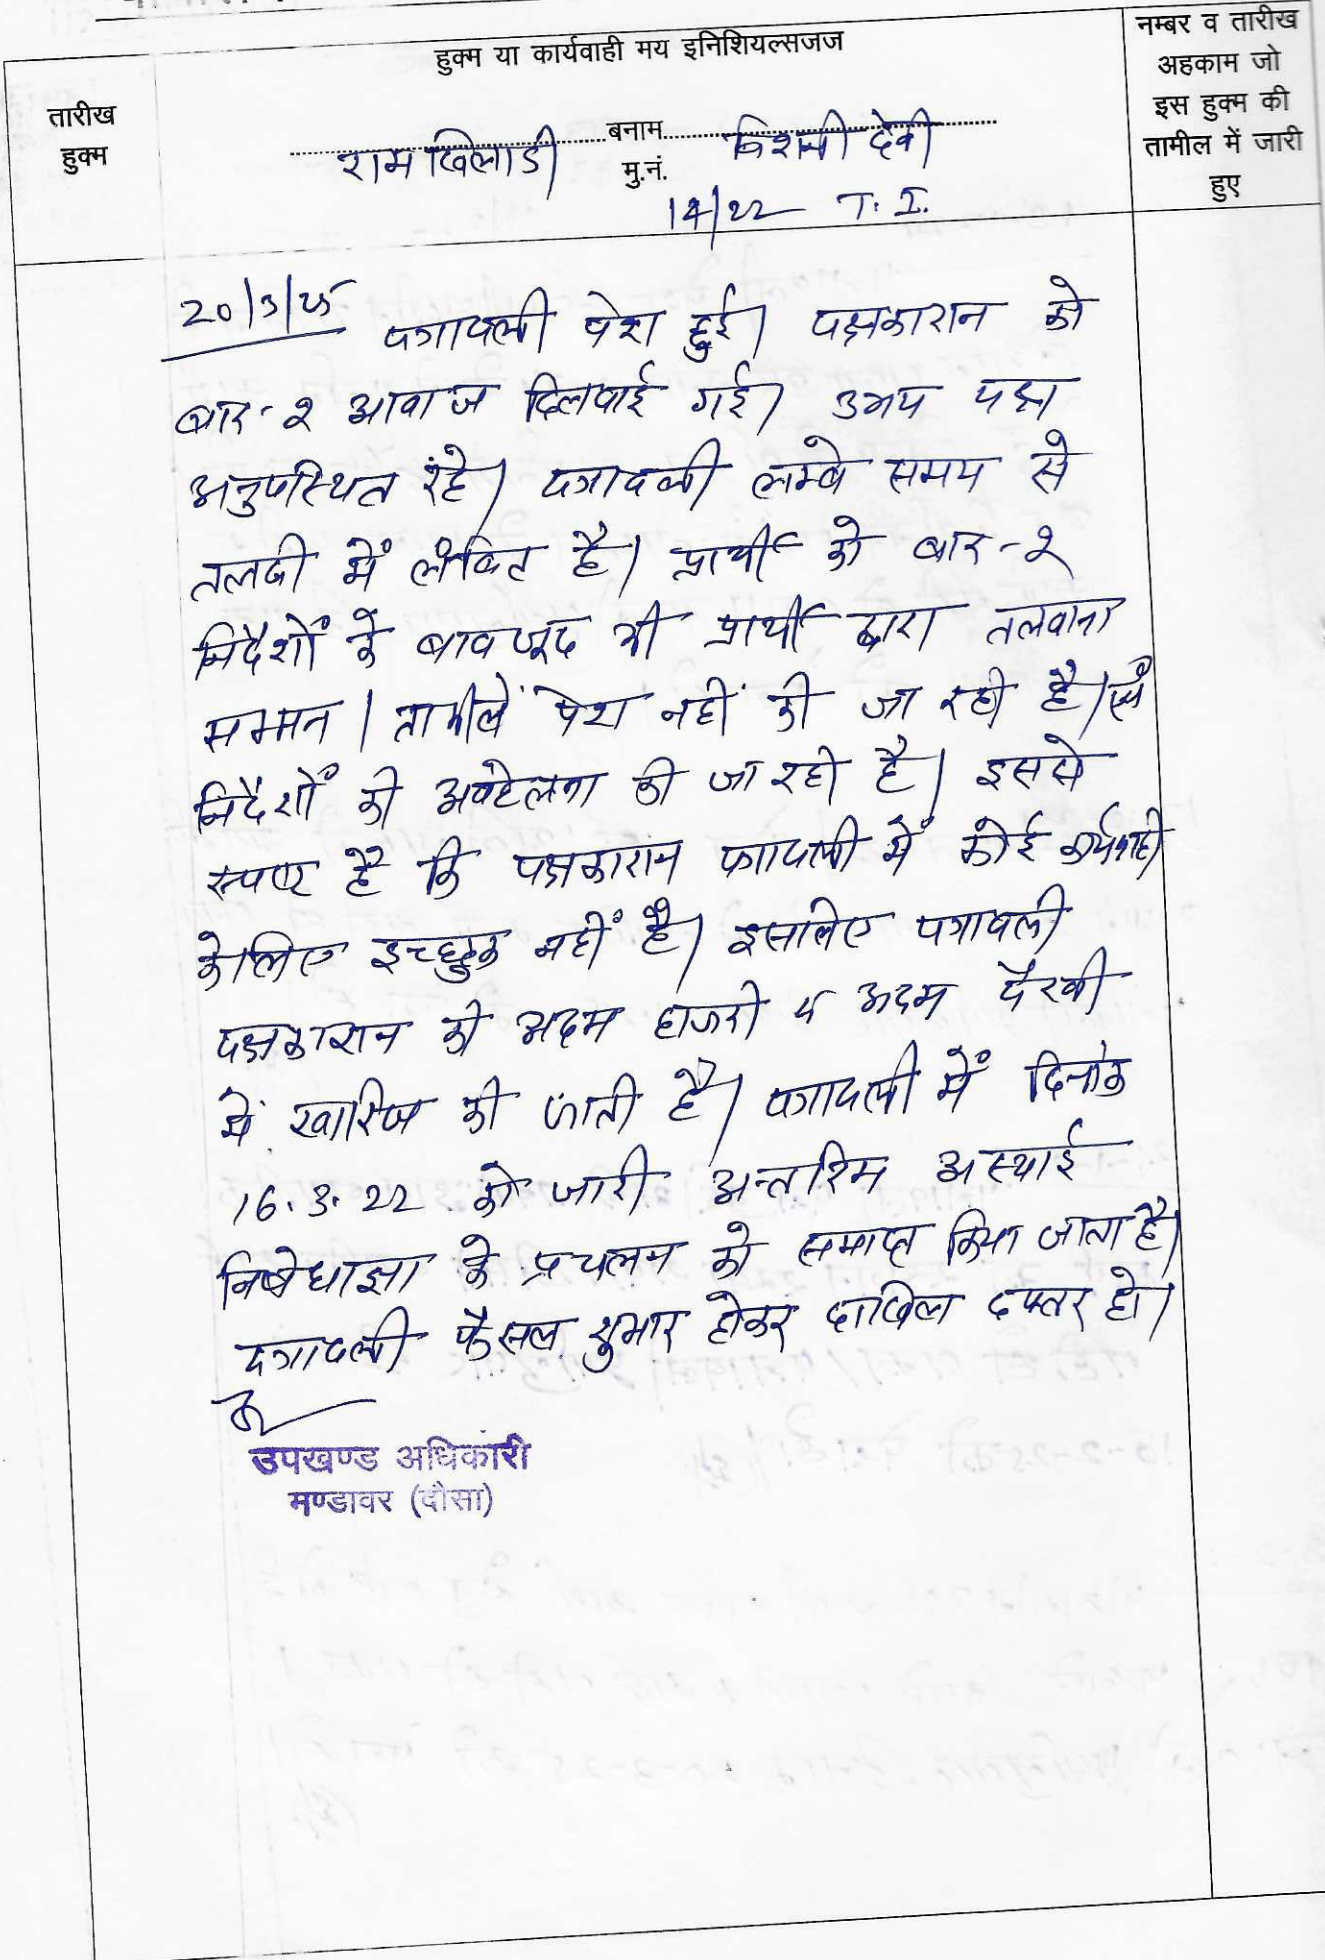 हुक्म या कार्यवाही मय इनिशियल्सजज
नम्बर व तारीख
अहकाम जो
इस हुक्म की
तामील में जारी
हुए
तारीख
हुक्म
रामखिलाडी बनाम किशनी देवी
मु.नं.
14/22 T. I.
20/3/25
पत्रावली पेश हुई। पक्षकारान को
बार-२ आवाज दिलवाई गई। उभय पक्ष
अनुपस्थित रहे। पत्रावली लम्बे समय से
तलबी में लंबित है। प्रार्थी को बार-२
निर्देशों के बावजूद भी प्रार्थी द्वारा तलवाना
सम्मन / तामीलें पेश नहीं की जा रही है।
निर्देशों की अवहेलना की जा रही है। इससे
स्पष्ट है कि पक्षकारान पत्रावली में कोई कार्यवाही
के लिए इच्छुक नहीं है। इसलिए पत्रावली
पक्षकारान की अदम हाजरी व अदम पैरवी
में खारिज की जाती है। पत्रावली में दिनांक
16.3.22 को जारी अन्तरिम अस्थाई
निषेधाज्ञा के प्रचलन को समाप्त किया जाता है।
पत्रावली फैसल शुमार होकर दाखिल दफ्तर हो।
उपखण्ड अधिकारी
मण्डावर (दौसा)